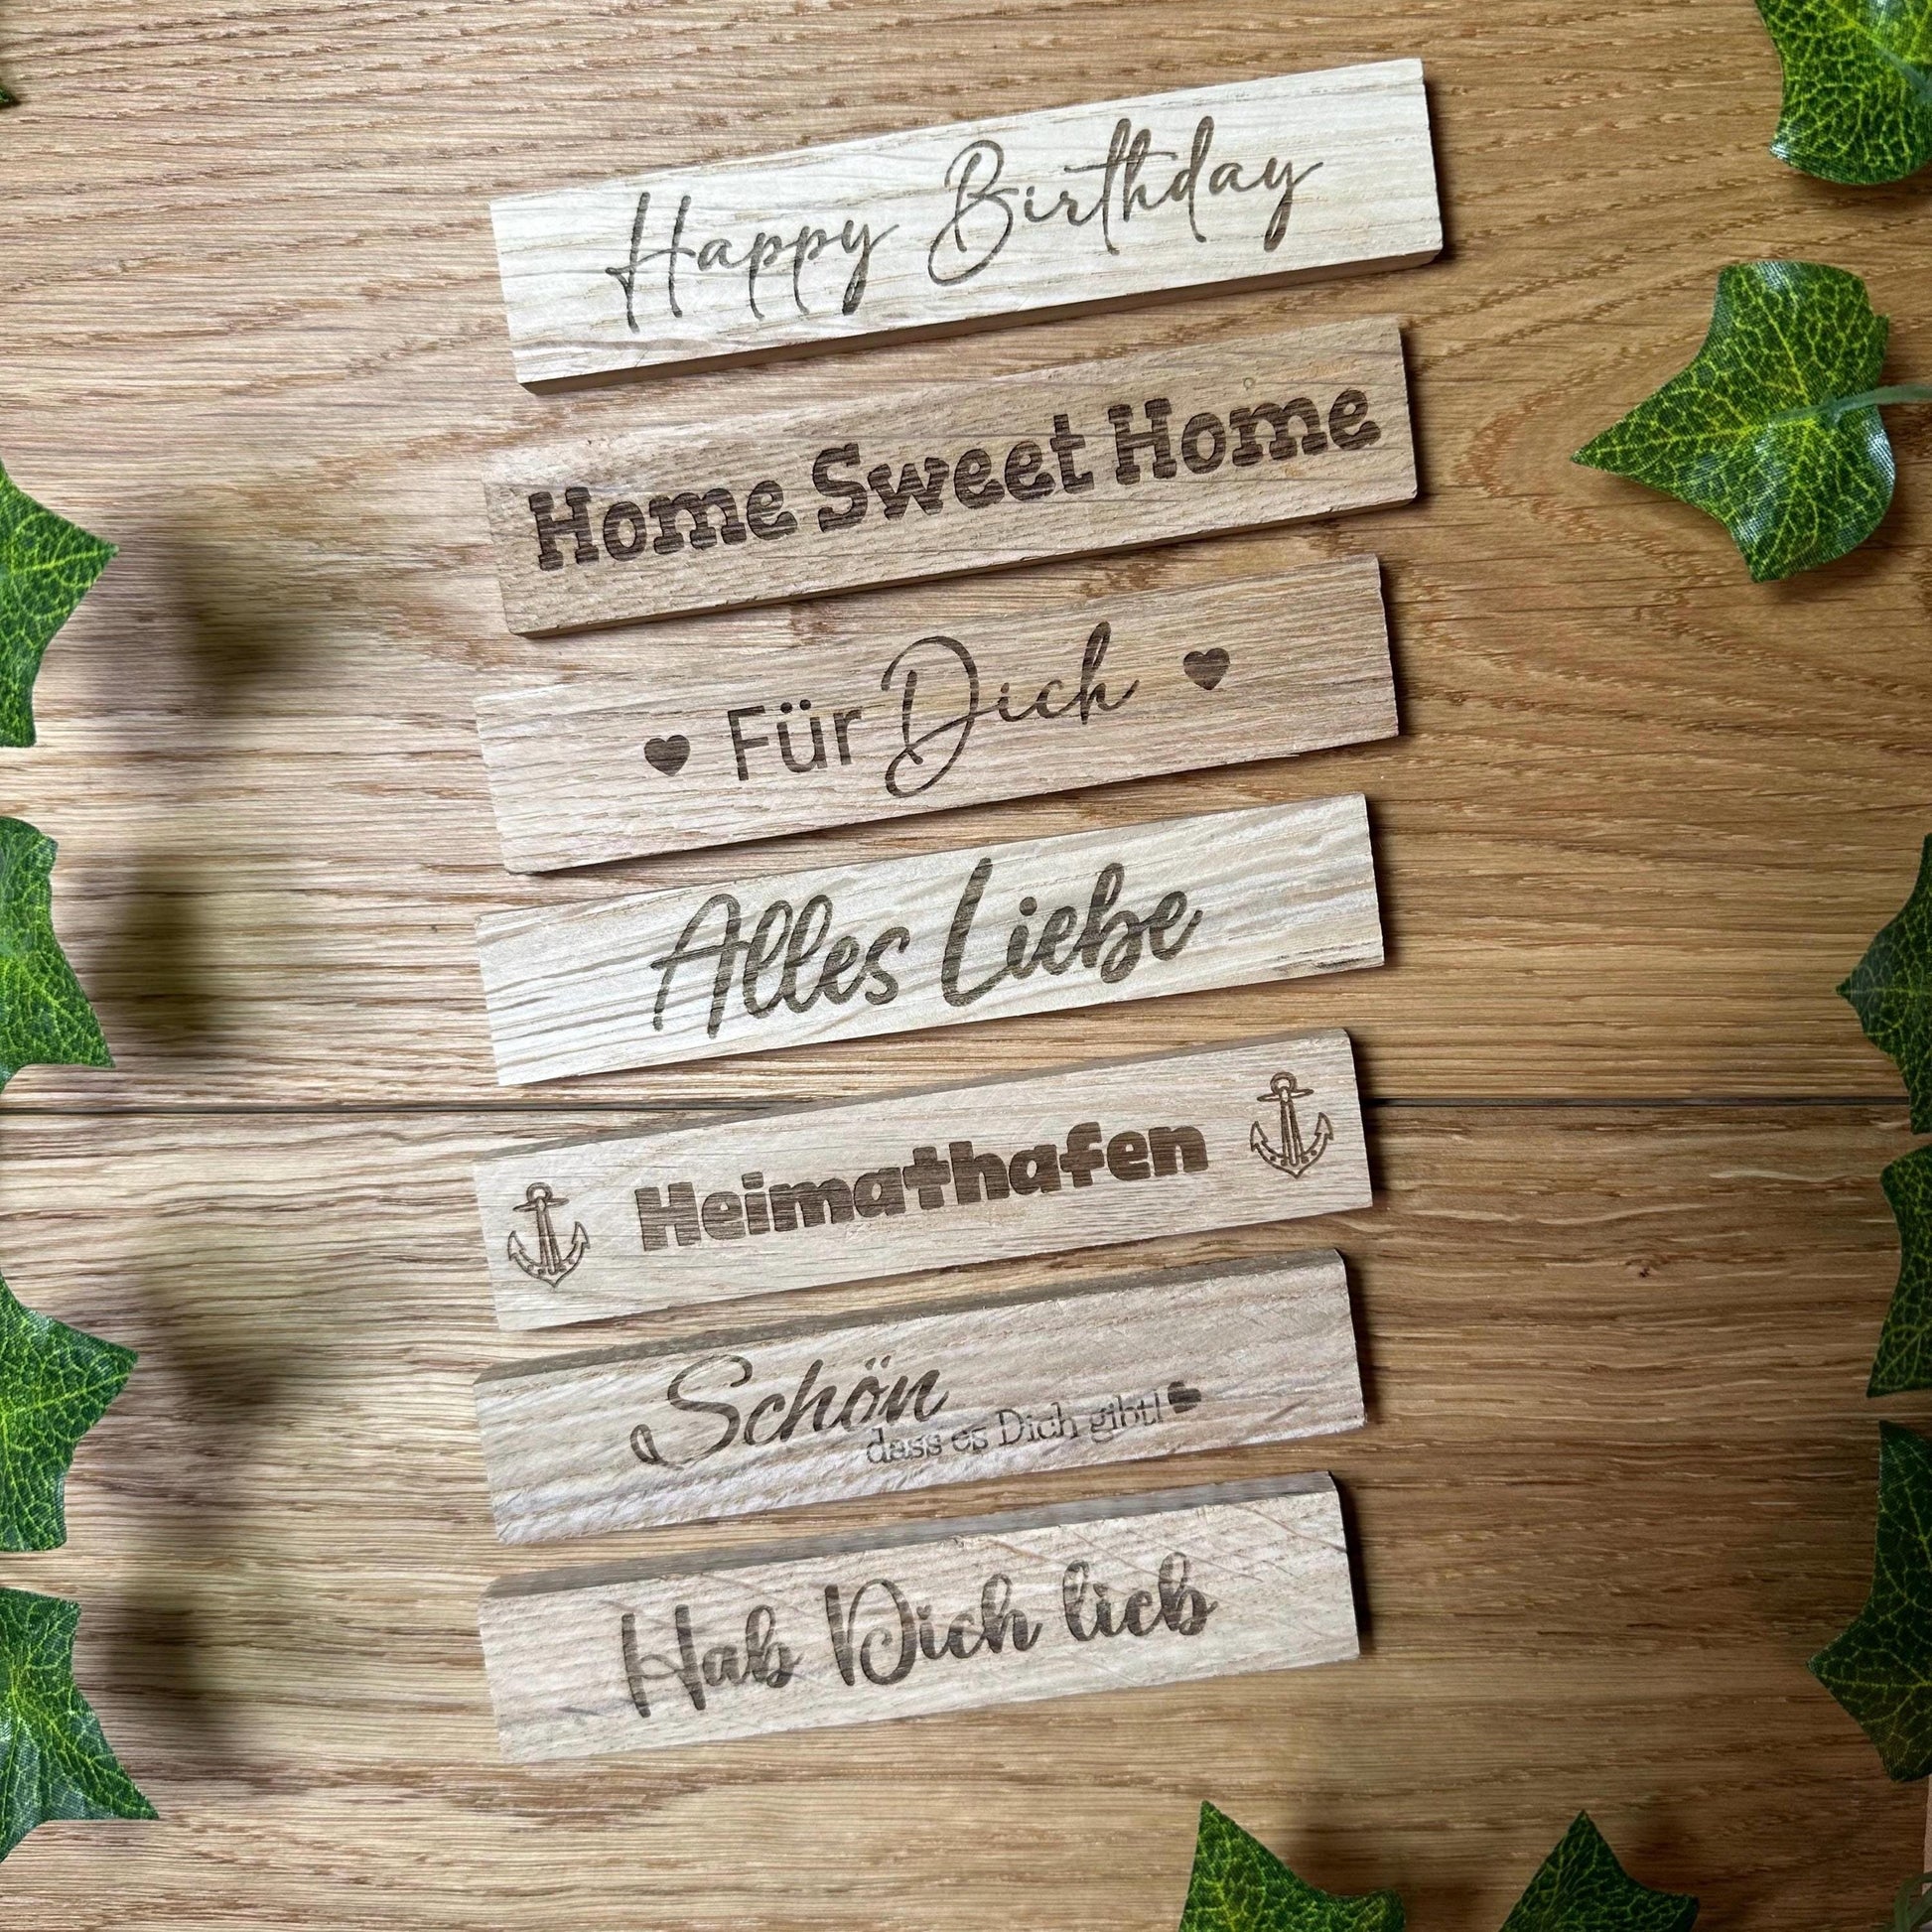 Happy Birthday
Home Sweet Home
Für Dich
Alles Liebe
Heimathafen
Schön
dass es Dich gibt!
Hab Dich lieb